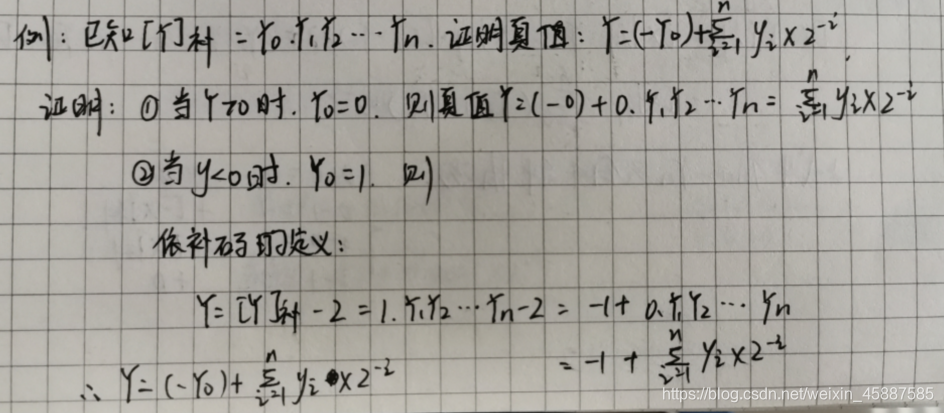 例: 已知[Y]补 = Y₀.Y₁Y₂⋯Yₙ. 证明真值: Y=(-Y₀)+∑ⁿᵢ₌₁ yᵢ×2⁻ⁱ
证明: ① 当Y>0时. Y₀=0. 则真值Y=(-0)+0.Y₁Y₂⋯Yₙ = ∑ⁿᵢ₌₁ yᵢ×2⁻ⁱ
②当y<0时. Y₀=1. 则
依补码的定义:
Y=[Y]补-2=1.Y₁Y₂⋯Yₙ-2 = -1+0.Y₁Y₂⋯Yₙ
= -1 + ∑ⁿᵢ₌₁ yᵢ×2⁻ⁱ
∴ Y=(-Y₀)+∑ⁿᵢ₌₁ yᵢ×2⁻ⁱ
https://blog.csdn.net/weixin_45387585